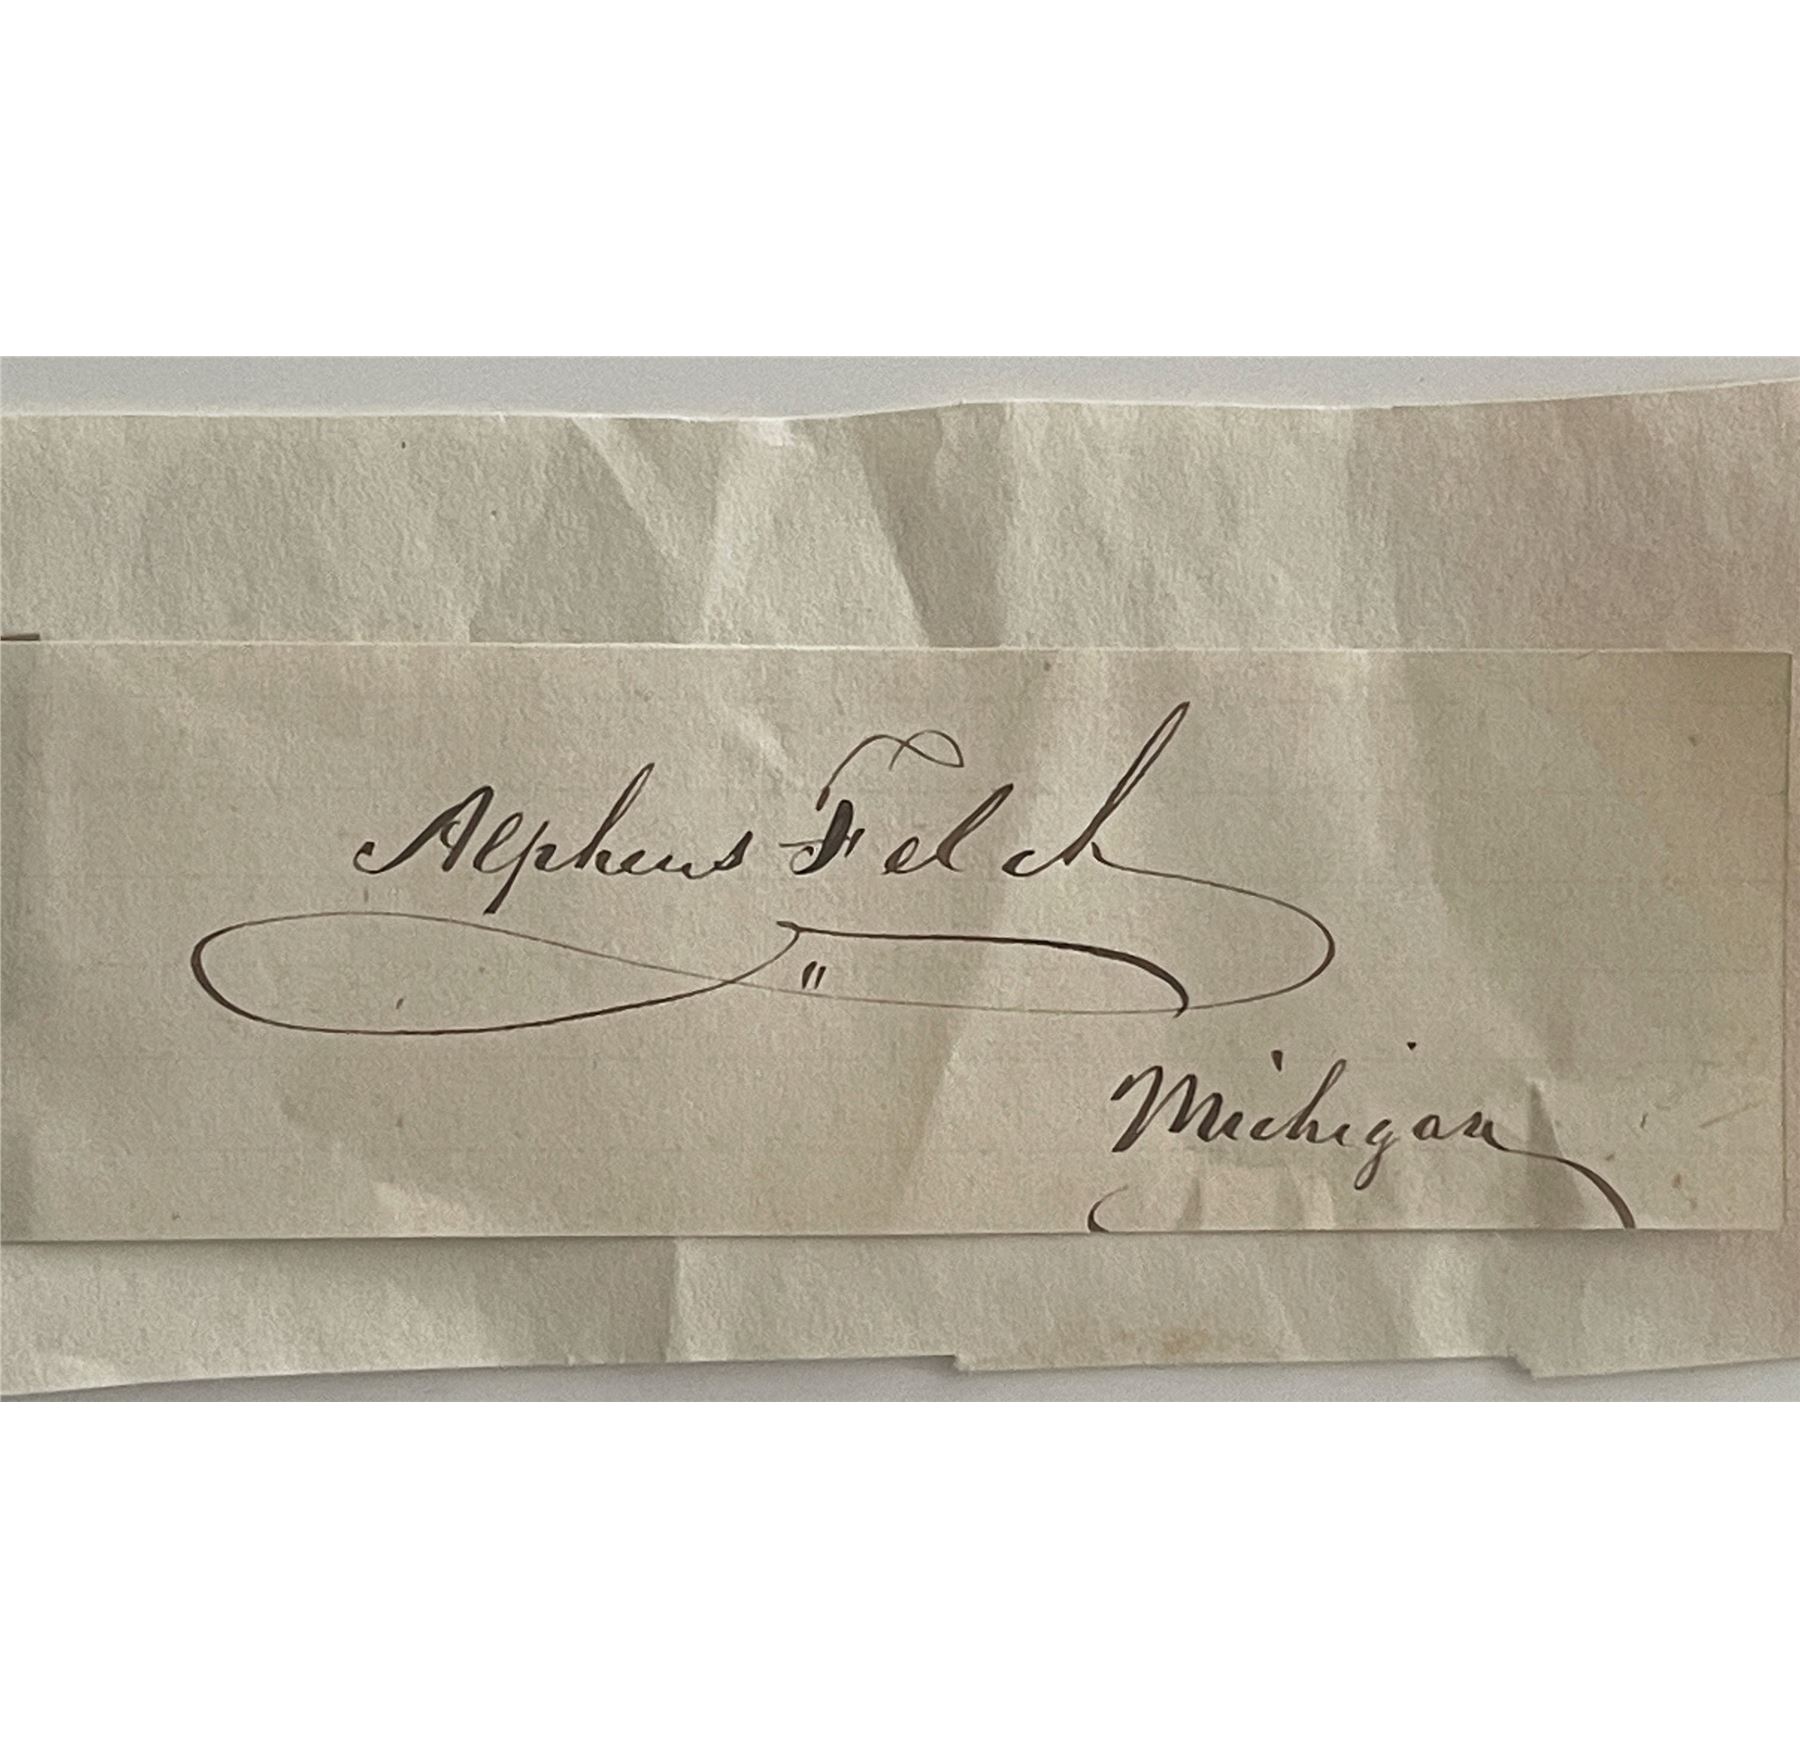 Alpheus Felch
"
Michigan